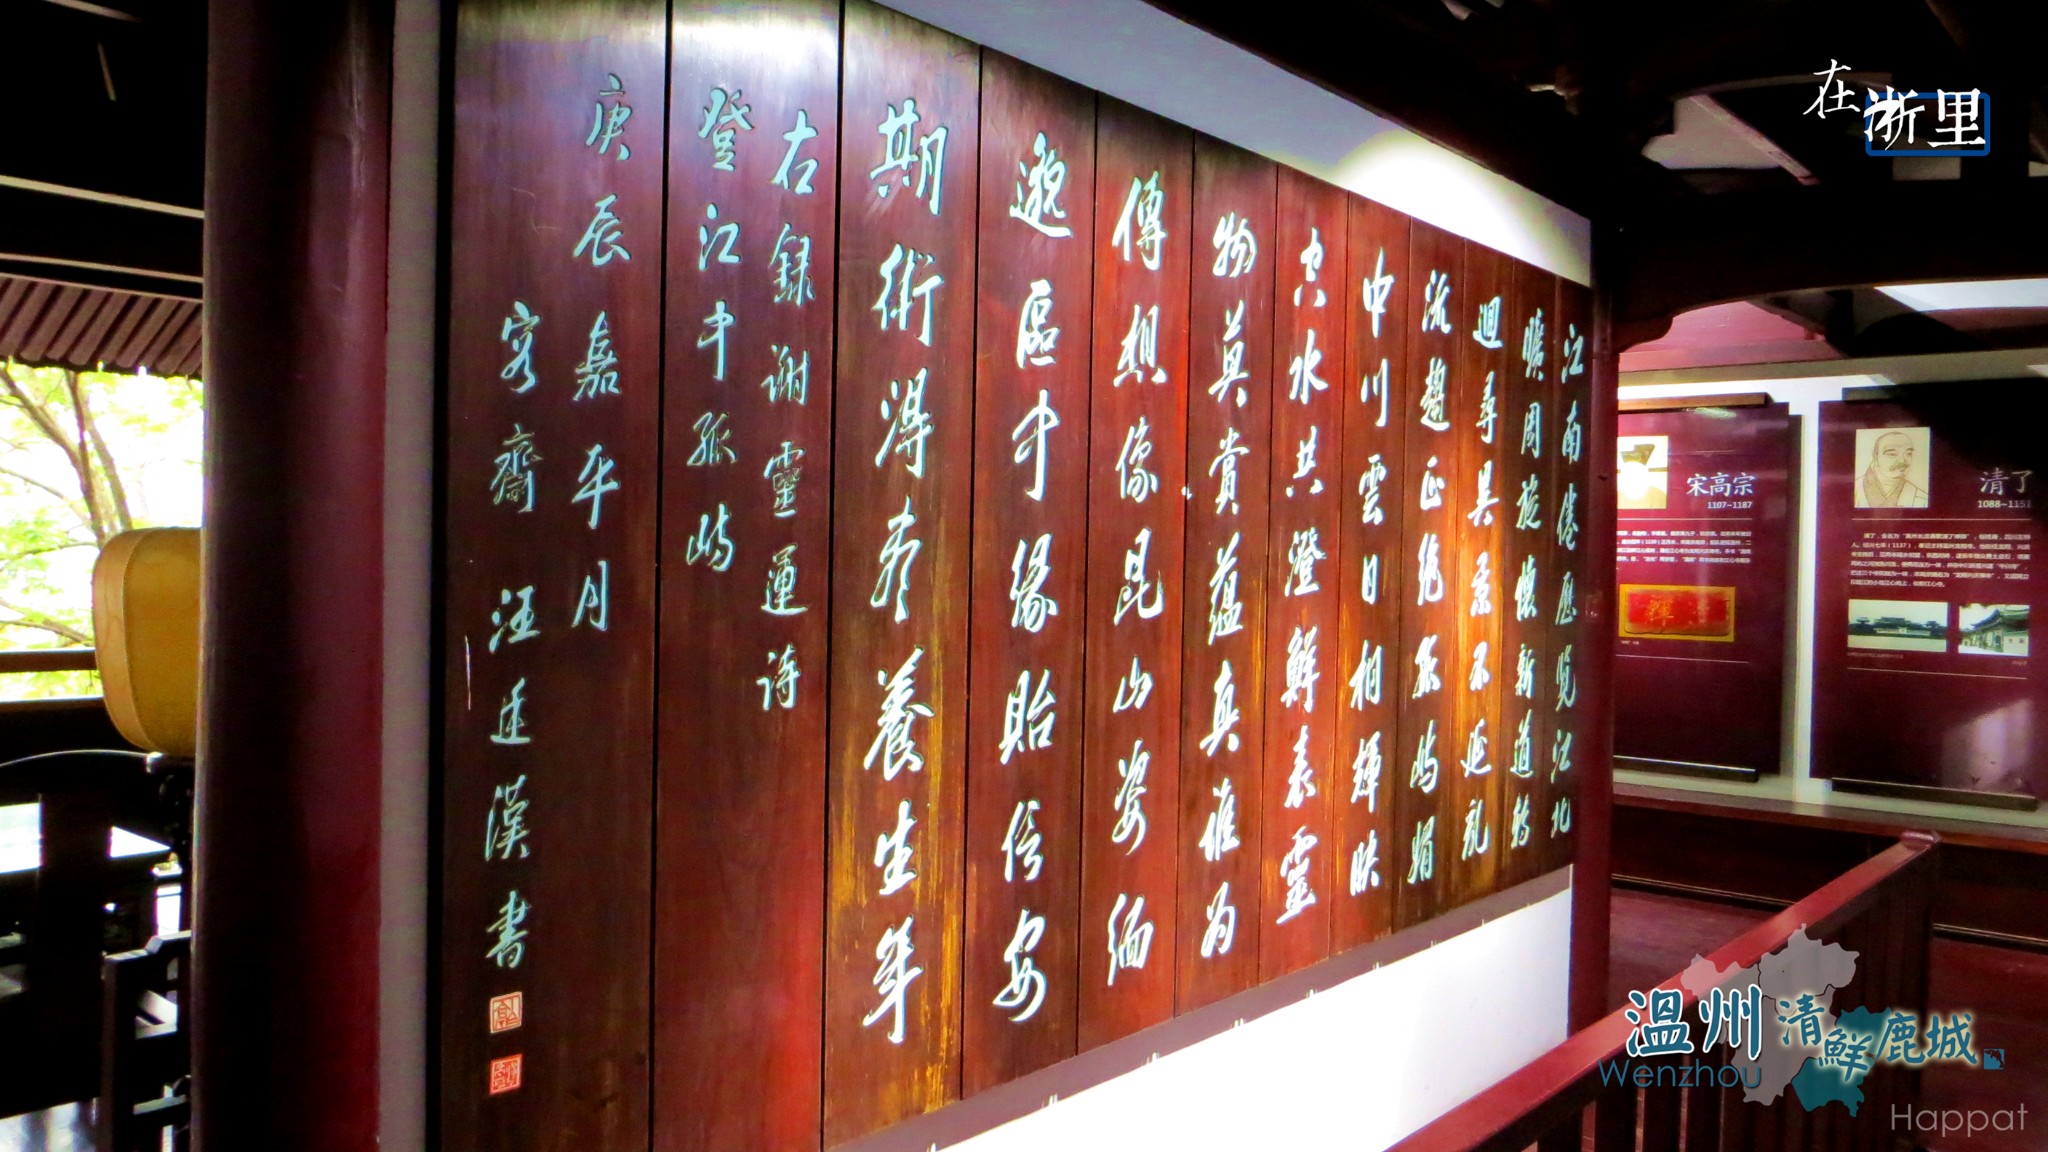 江南倦歷覽江北
曠周旋懷新道轉
迴尋異景不延亂
流趨正絕孤嶼媚
中川雲日相輝映
空水共澄鮮表靈
物莫賞蘊真誰為
傳想像昆山姿緬
邈區中緣貽信安
期術得盡養生年
右錄謝靈運詩
登江中孤嶼
庚辰嘉平月
容齋 汪廷漢書
在浙里
宋高宗
1107-1187
清了
1088-1151
温州
Wenzhou
清鮮鹿城
Happat